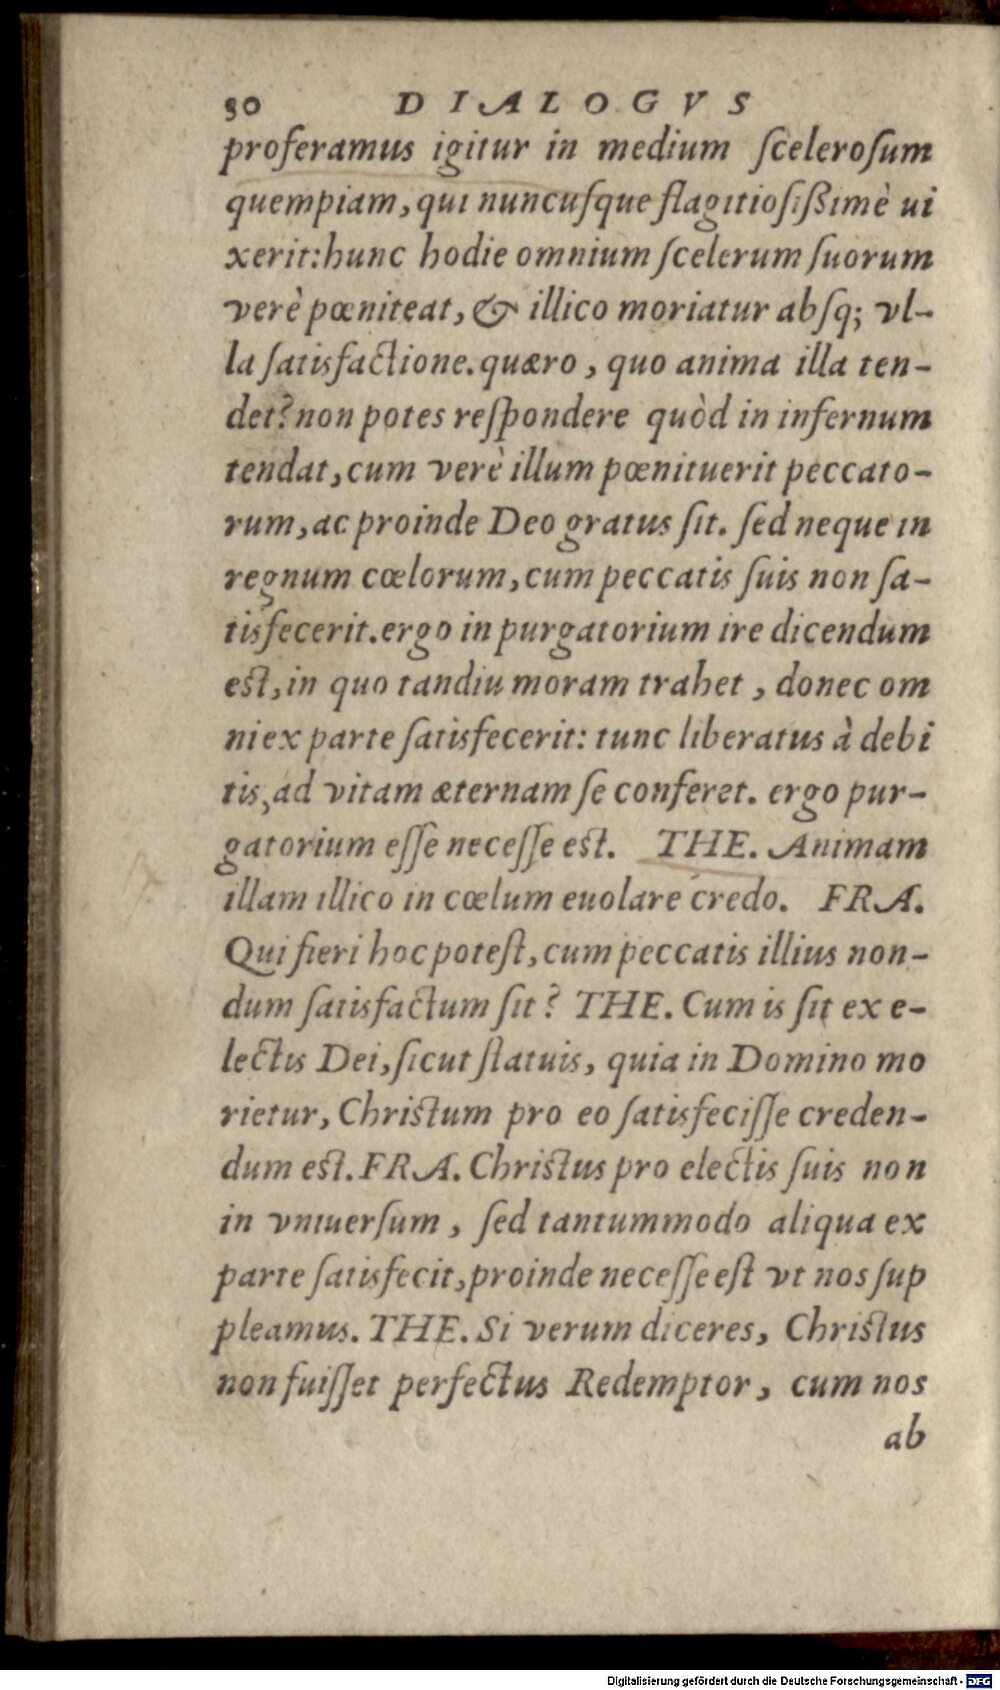 50 DIALOGVS
proferamus igitur in medium ſceleroſum
quempiam, qui nuncuſque flagitioſißimè ui
xerit: hunc hodie omnium ſcelerum ſuorum
verè pœniteat, & illico moriatur abſq; vl-
la ſatisfactione. quæro, quo anima illa ten-
det? non potes reſpondere quòd in infernum
tendat, cum verè illum pœnituerit peccato-
rum, ac proinde Deo gratus ſit. ſed neque in
regnum cœlorum, cum peccatis ſuis non ſa-
tisfecerit. ergo in purgatorium ire dicendum
est, in quo tandiu moram trahet, donec om
ni ex parte ſatisfecerit: tunc liberatus à debi
tis, ad vitam æternam ſe conferet. ergo pur-
gatorium eſſe neceſſe est. THE. Animam
illam illico in cœlum euolare credo. FRA.
Qui fieri hoc poteſt, cum peccatis illius non-
dum ſatisfactum ſit? THE. Cum is ſit ex e-
lectis Dei, ſicut ſtatuis, quia in Domino mo
rietur, Christum pro eo ſatisfeciſſe creden-
dum est. FRA. Christus pro electis ſuis non
in vniuerſum, ſed tantummodo aliqua ex
parte ſatisfecit, proinde neceſſe eſt vt nos ſup
pleamus. THE. Si verum diceres, Christus
non fuiſſet perfectus Redemptor, cum nos
ab
Digitalisierung gefördert durch die Deutsche Forschungsgemeinschaft - DFG